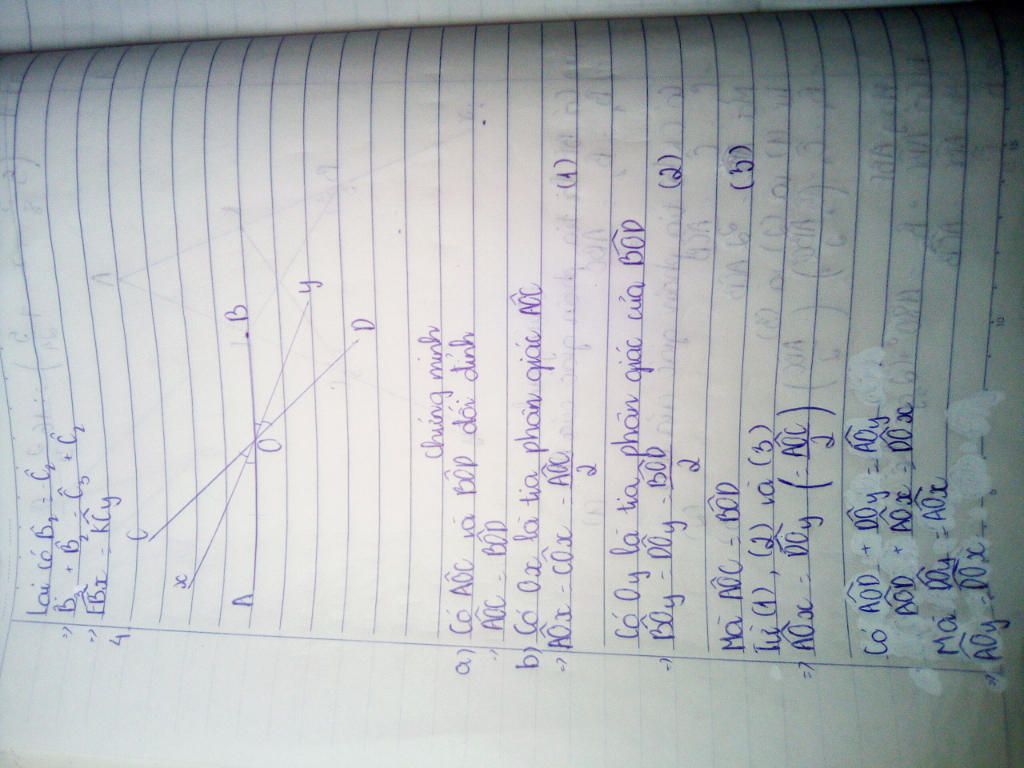 Lại có B₂ = C₂
⇒ B₃ + B₂ = C₃ + C₂
⇒ EBx = KCy
4.
x
C
A
O
B
y
D
chứng minh
a) Có AÔC và BÔD đối đỉnh
⇒ AÔC = BÔD
b) Có Ox là tia phân giác AÔC
⇒ AÔx = CÔx = AÔC/2 (1)
Có Oy là tia phân giác của BÔD
⇒ BÔy = DÔy = BÔD/2 (2)
Mà AÔC = BÔD (3)
Từ (1), (2) và (3)
⇒ AÔx = DÔy (= AÔC/2)
Có AÔD + DÔy = AÔy
AÔD + AÔx = DÔx
Mà DÔy = AÔx
⇒ AÔy = DÔx